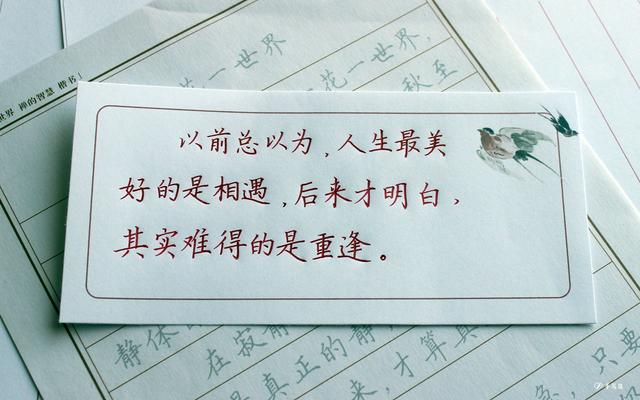 花一世界
花一世界，
秋至
世界 禅的智慧 楷书
以前总以为，人生最美
好的是相遇，后来才明白，
其实难得的是重逢。
静体
在寂静
真正的静
来，才算真
急，只要